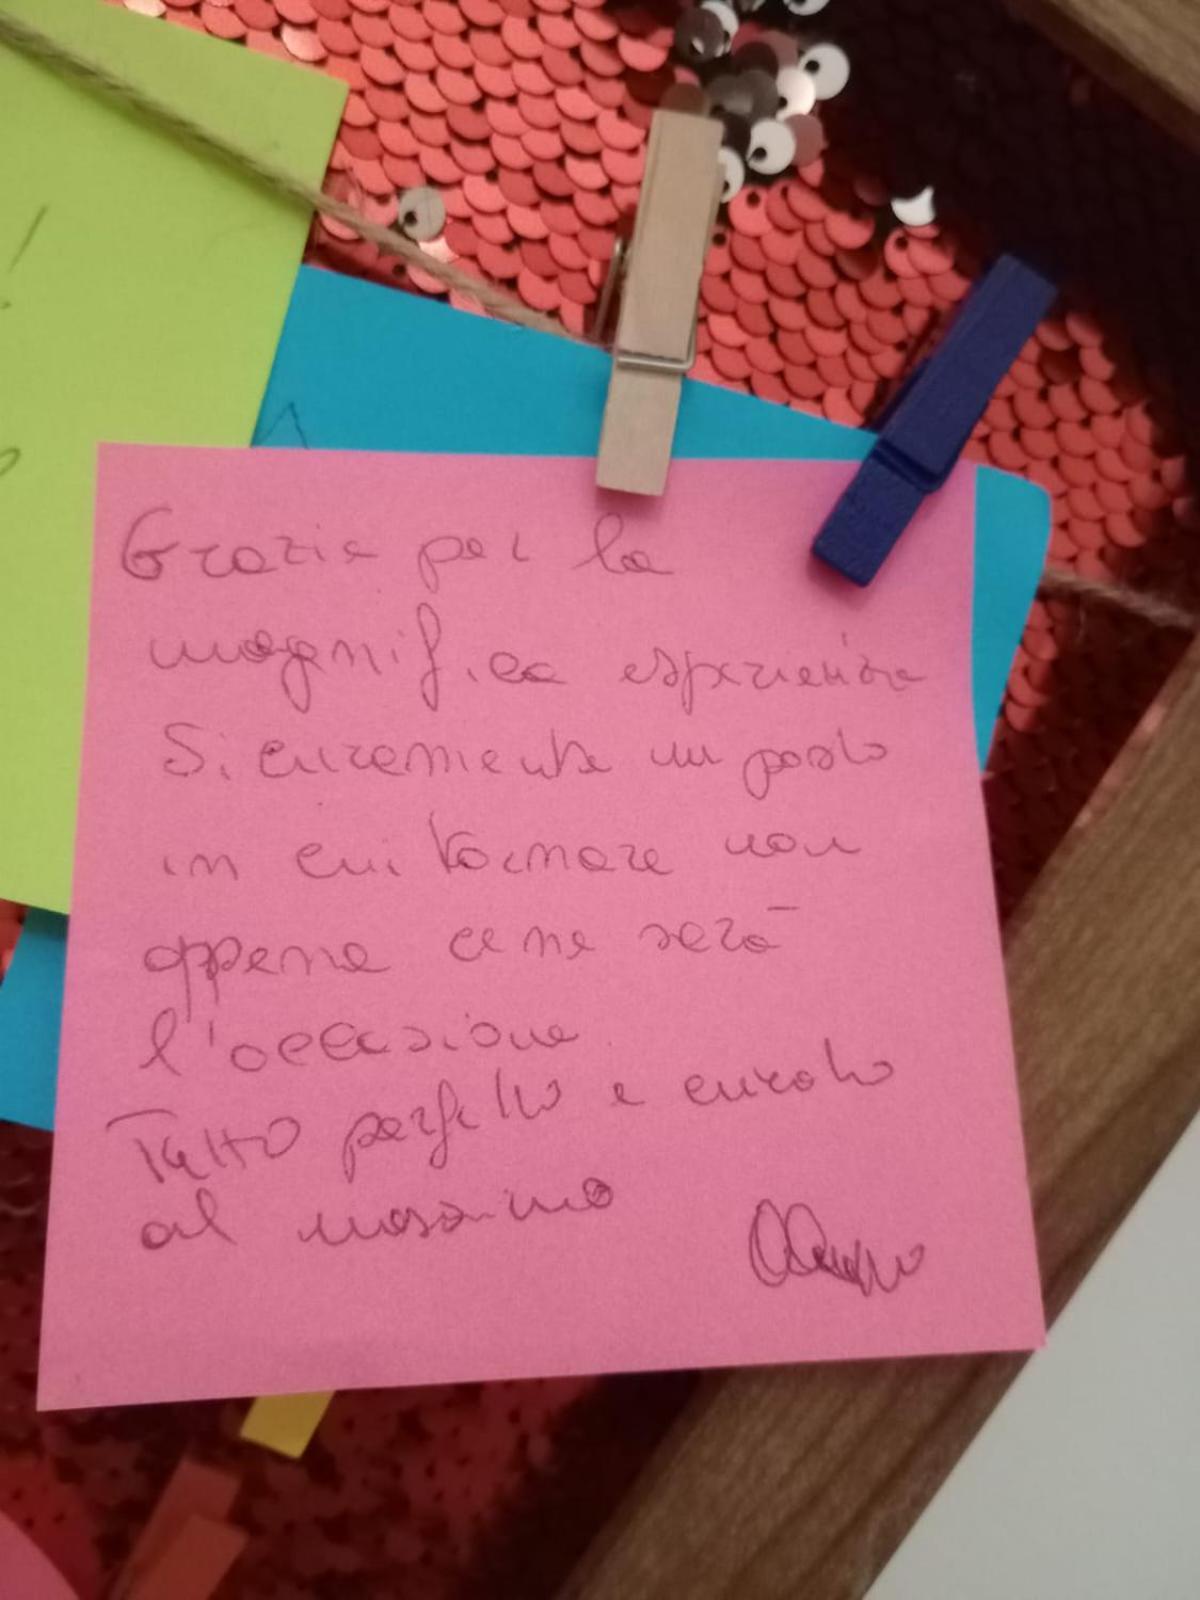 Grazie per la
magnifica esperienza
Sicuramente un posto
in cui tornare non
appena ce ne sarà
l'occasione
Tutto perfetto e curato
al massimo